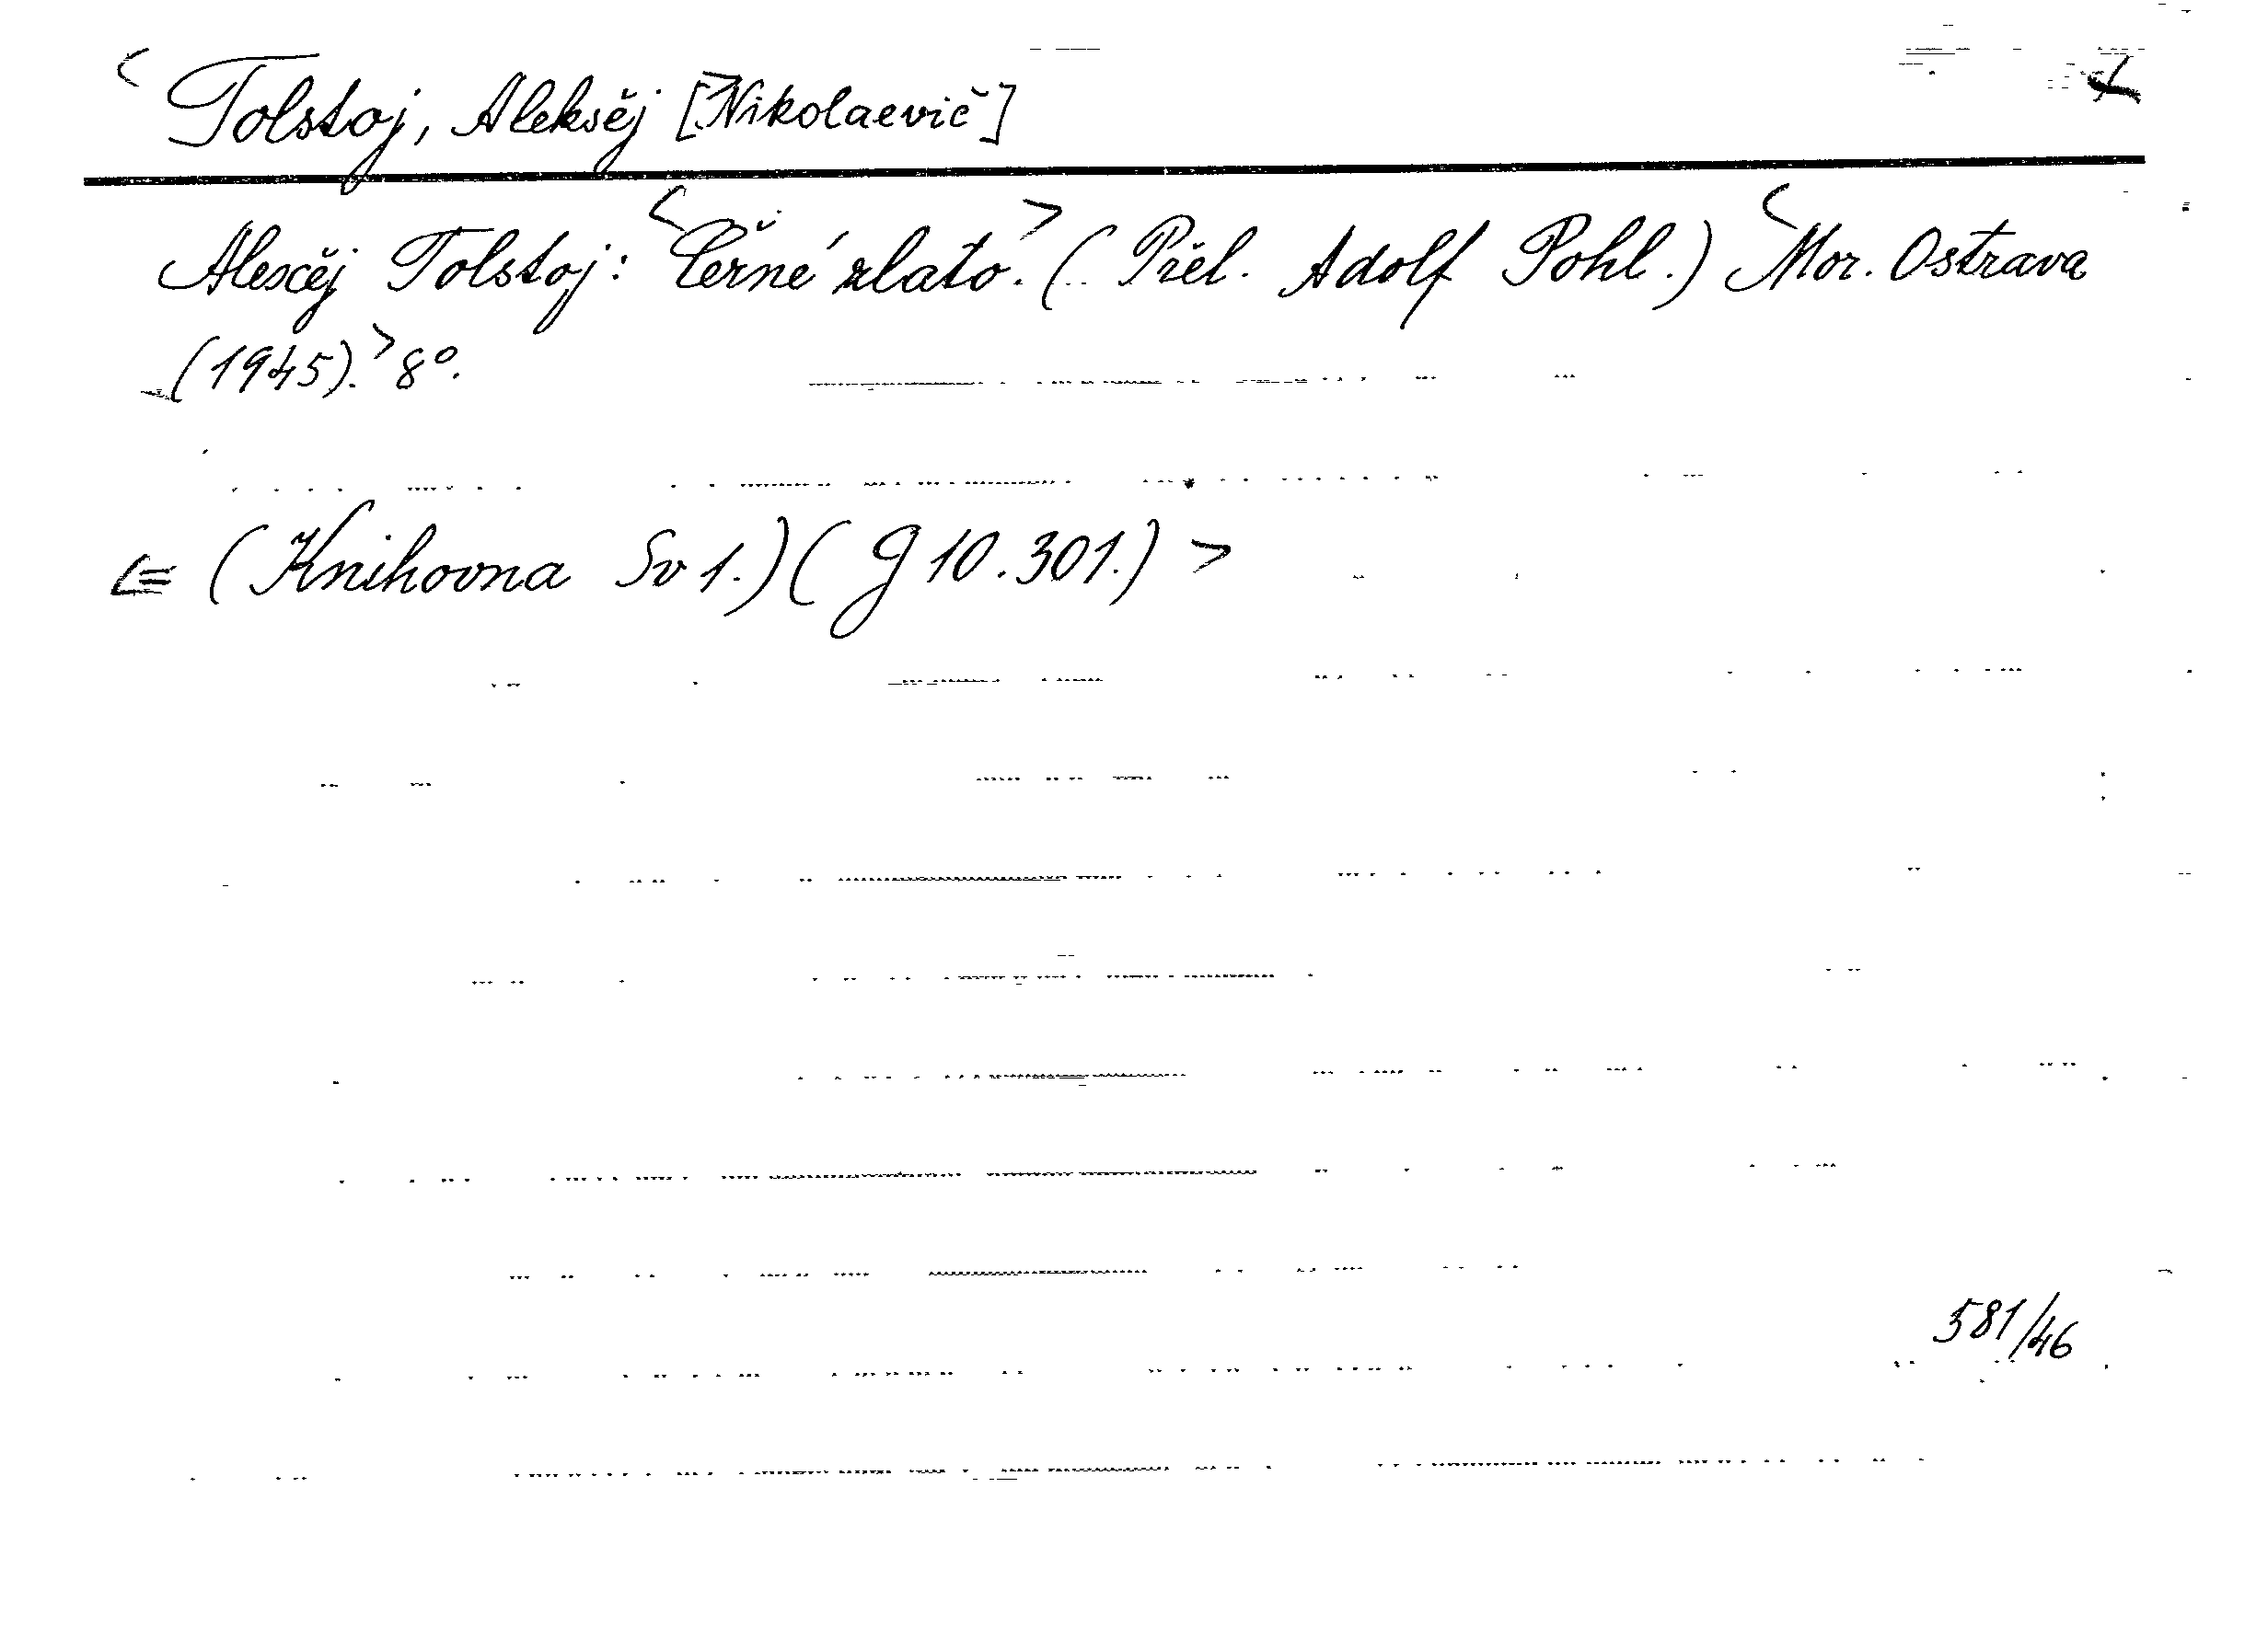 < Tolstoj, Aleksěj [Nikolaevič] >
Alexěj Tolstoj: <Černé zlato.> (Přel. Adolf Pohl.) <Mor. Ostrava
(1945).> 8°.
<= (Knihovna Sv 1.) (G 10.301.) >
581/46